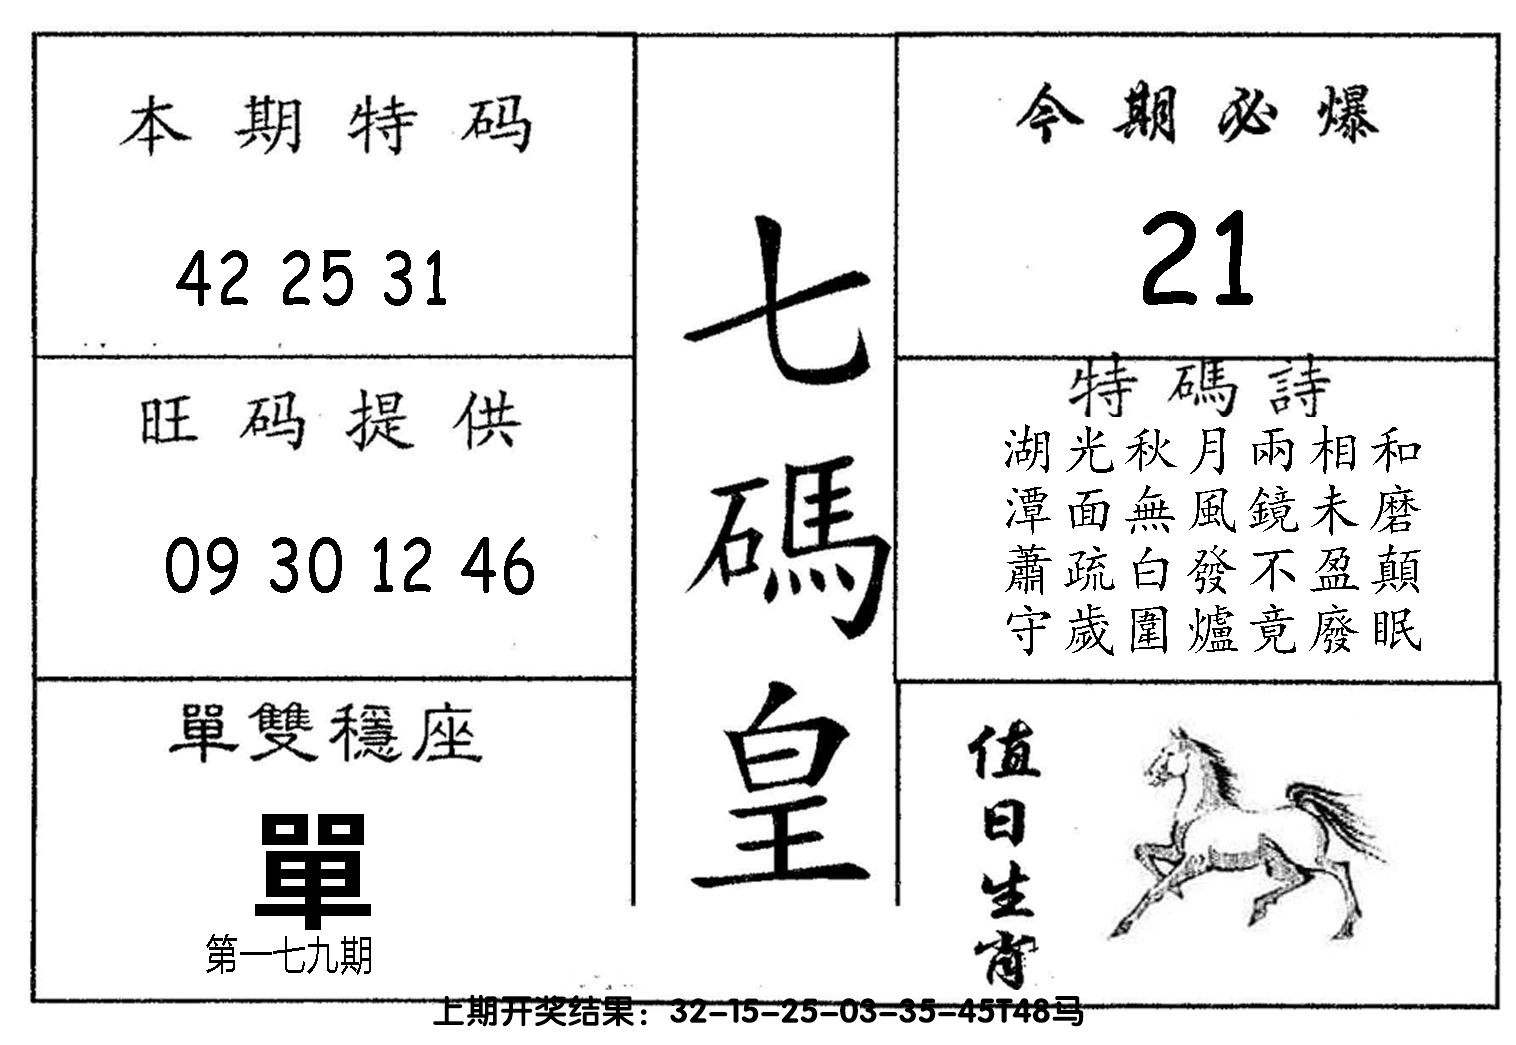 本期特码
42 25 31
旺码提供
09 30 12 46
單雙穩座
單
第一七九期
七碼皇
今期必爆
21
特碼詩
湖光秋月兩相和
潭面無風鏡未磨
蕭疏白發不盈顛
守歲圍爐竟廢眠
值日生肖
上期开奖结果：32-15-25-03-35-45T48马